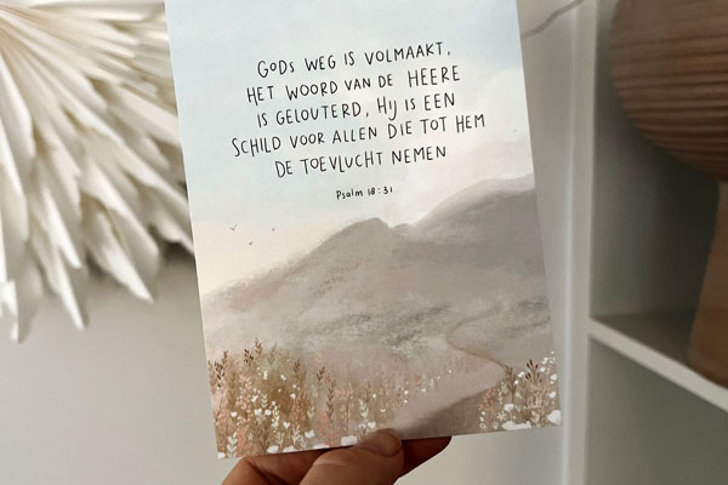 GODS WEG IS VOLMAAKT,
HET WOORD VAN DE HEERE
IS GELOUTERD, HIJ IS EEN
SCHILD VOOR ALLEN DIE TOT HEM
DE TOEVLUCHT NEMEN
Psalm 18:31